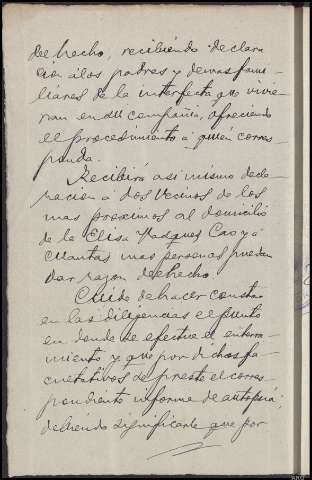 del hecho, recibiendo declara
ción á los padres y demas fami-
liares de la interfecta que vivie-
ran en su compañia, ofreciendo
el procedimiento á quien corres-
ponda.
Recibirá asi mismo decla-
racion á dos vecinos de los
mas proximos al domicilio
de la Elisa Vazquez Cao y á
cuantas mas personas puedan
dar razon del hecho
Cuide de hacer constar
en las diligencias el punto
en donde se efectue el enterra-
miento y que por dichos fa-
cultativos se preste el corres-
pondiente informe de autopsia;
debiendo significarle que por